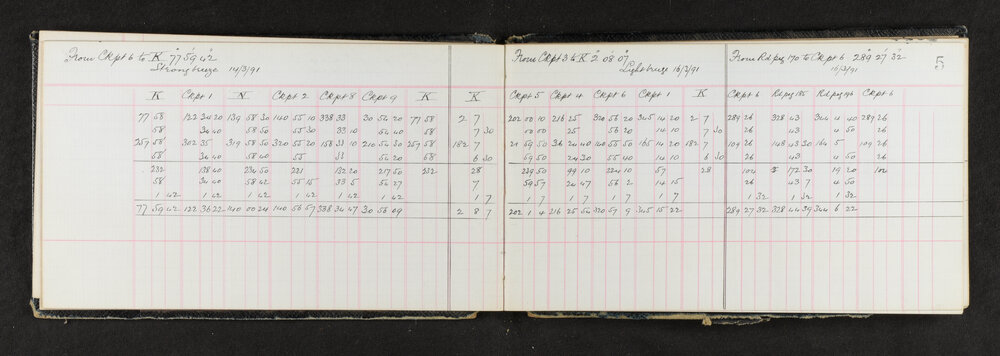 From Ckpt 6 to K 77° 59' 42"
Strong breeze 14/3/91
K Ckpt 1 N Ckpt 2 Ckpt 8 Ckpt 9 K
77 58 122 34 20 139 58 30 140 55 10 338 33 30 54 20 77 58
58 34 40 58 50 55 30 33 10 54 40 58
257 58 302 35 319 58 50 320 55 20 158 33 10 210 54 30 257 58
58 34 40 58 40 55 33 54 20 58
232 138 40 234 50 221 132 20 217 50 232
58 34 40 58 42 55 15 33 5 54 27
1 42 1 42 1 42 1 42 1 42 1 42
77 59 42 122 36 22 140 00 24 140 56 57 338 34 47 30 56 09
K
2 7
7 30
182 7
6 30
28
7
1 7
2 8 7
From Ckpt 3 to K 2° 08' 07"
Light breeze 16/3/91
Ckpt 5 Ckpt 4 Ckpt 6 Ckpt 1 K
202 00 10 216 25 320 56 20 345 14 20 2 7
00 00 25 56 20 14 10 7 30
21 59 50 36 24 40 140 55 50 165 14 20 182 7
59 50 24 30 55 40 14 10 6 30
239 50 99 10 224 10 57 28
59 57 24 47 56 2 14 15
1 7 1 7 1 7 1 7
202 1 4 216 25 54 320 57 9 345 15 22
From Rd peg 190 to Ckpt 6 289° 27' 32"
16/3/91
5
Ckpt 6 Rd peg 185 Rd peg 196 Ckpt 6
289 26 328 43 344 4 40 289 26
26 43 4 50 26
109 26 148 43 30 164 5 109 26
26 43 4 50 26
104 172 30 19 20 104
26 43 7 4 50
1 32 1 32 1 32
289 27 32 328 44 39 344 6 22